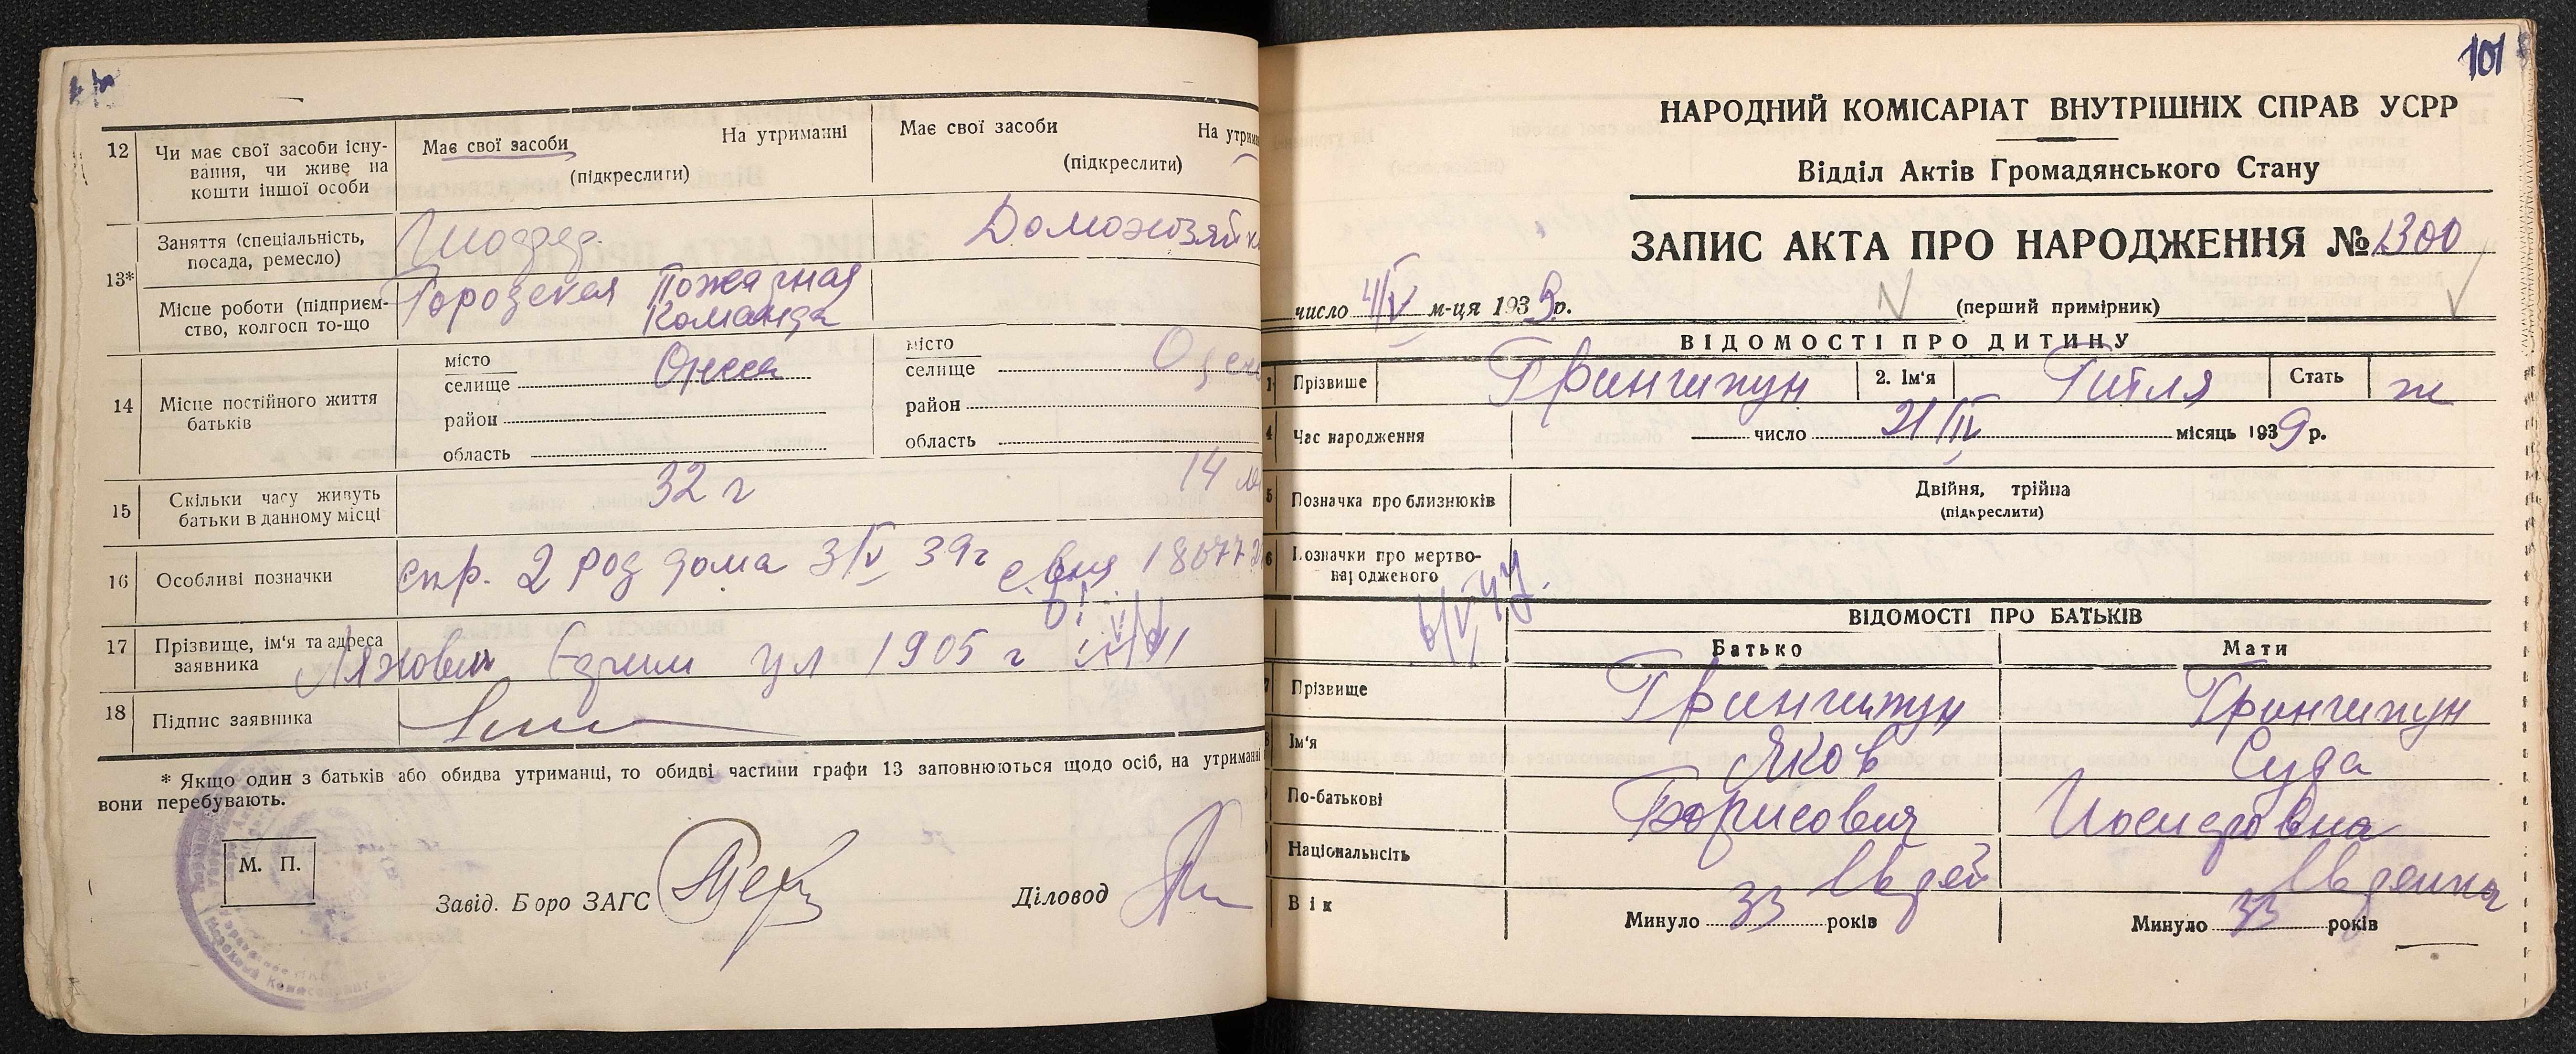 12
Чи має свої засоби існу-
вання, чи живе на
кошти іншої особи
Має свої засоби
На утриманні
(підкреслити)
Має свої засоби
На утрим
(підкреслити)
13*
Заняття (спеціальність,
посада, ремесло)
Домохозяйка
Місце роботи (підприєм-
ство, колгосп то-що
Городская Пожарная
Команда
14
Місце постійного життя
батьків
місто
селище
Одесса
район
область
місто
селище
Одесса
район
область
15
Скільки часу живуть
батьки в данному місці
32 г
14
16
Особливі позначки
спр. 2 род дома 3/V 39г
17
Прізвище, ім'я та адреса
заявника
ул 1905 г
18
Підпис заявника
* Якщо один з батьків або обидва утриманці, то обидві частини графи 13 заповнюються щодо осіб, на утриманні
вони перебувають.
М. П.
Завід. Бюро ЗАГС
Діловод
101
НАРОДНИЙ КОМІСАРІАТ ВНУТРІШНІХ СПРАВ УСРР
Відділ Актів Громадянського Стану
ЗАПИС АКТА ПРО НАРОДЖЕННЯ № 1300
число 4/V м-ця 1939 р.
(перший примірник)
ВІДОМОСТІ ПРО ДИТИНУ
1
Прізвище
Грингижун
2. Ім'я
Гитля
Стать
ж
4
Час народження
число 21/IV місяць 1939 р.
5
Позначка про близнюків
Двійня, трійна
(підкреслити)
6
Позначки про мертво-
народженого
ВІДОМОСТІ ПРО БАТЬКІВ
Батько
Мати
7
Прізвище
Грингижун
Грингижун
Ім'я
Яков
Суда
По-батькові
Борисович
Иосифовна
Національність
Еврей
Еврейка
Вік
Минуло 33 років
Минуло 33 років